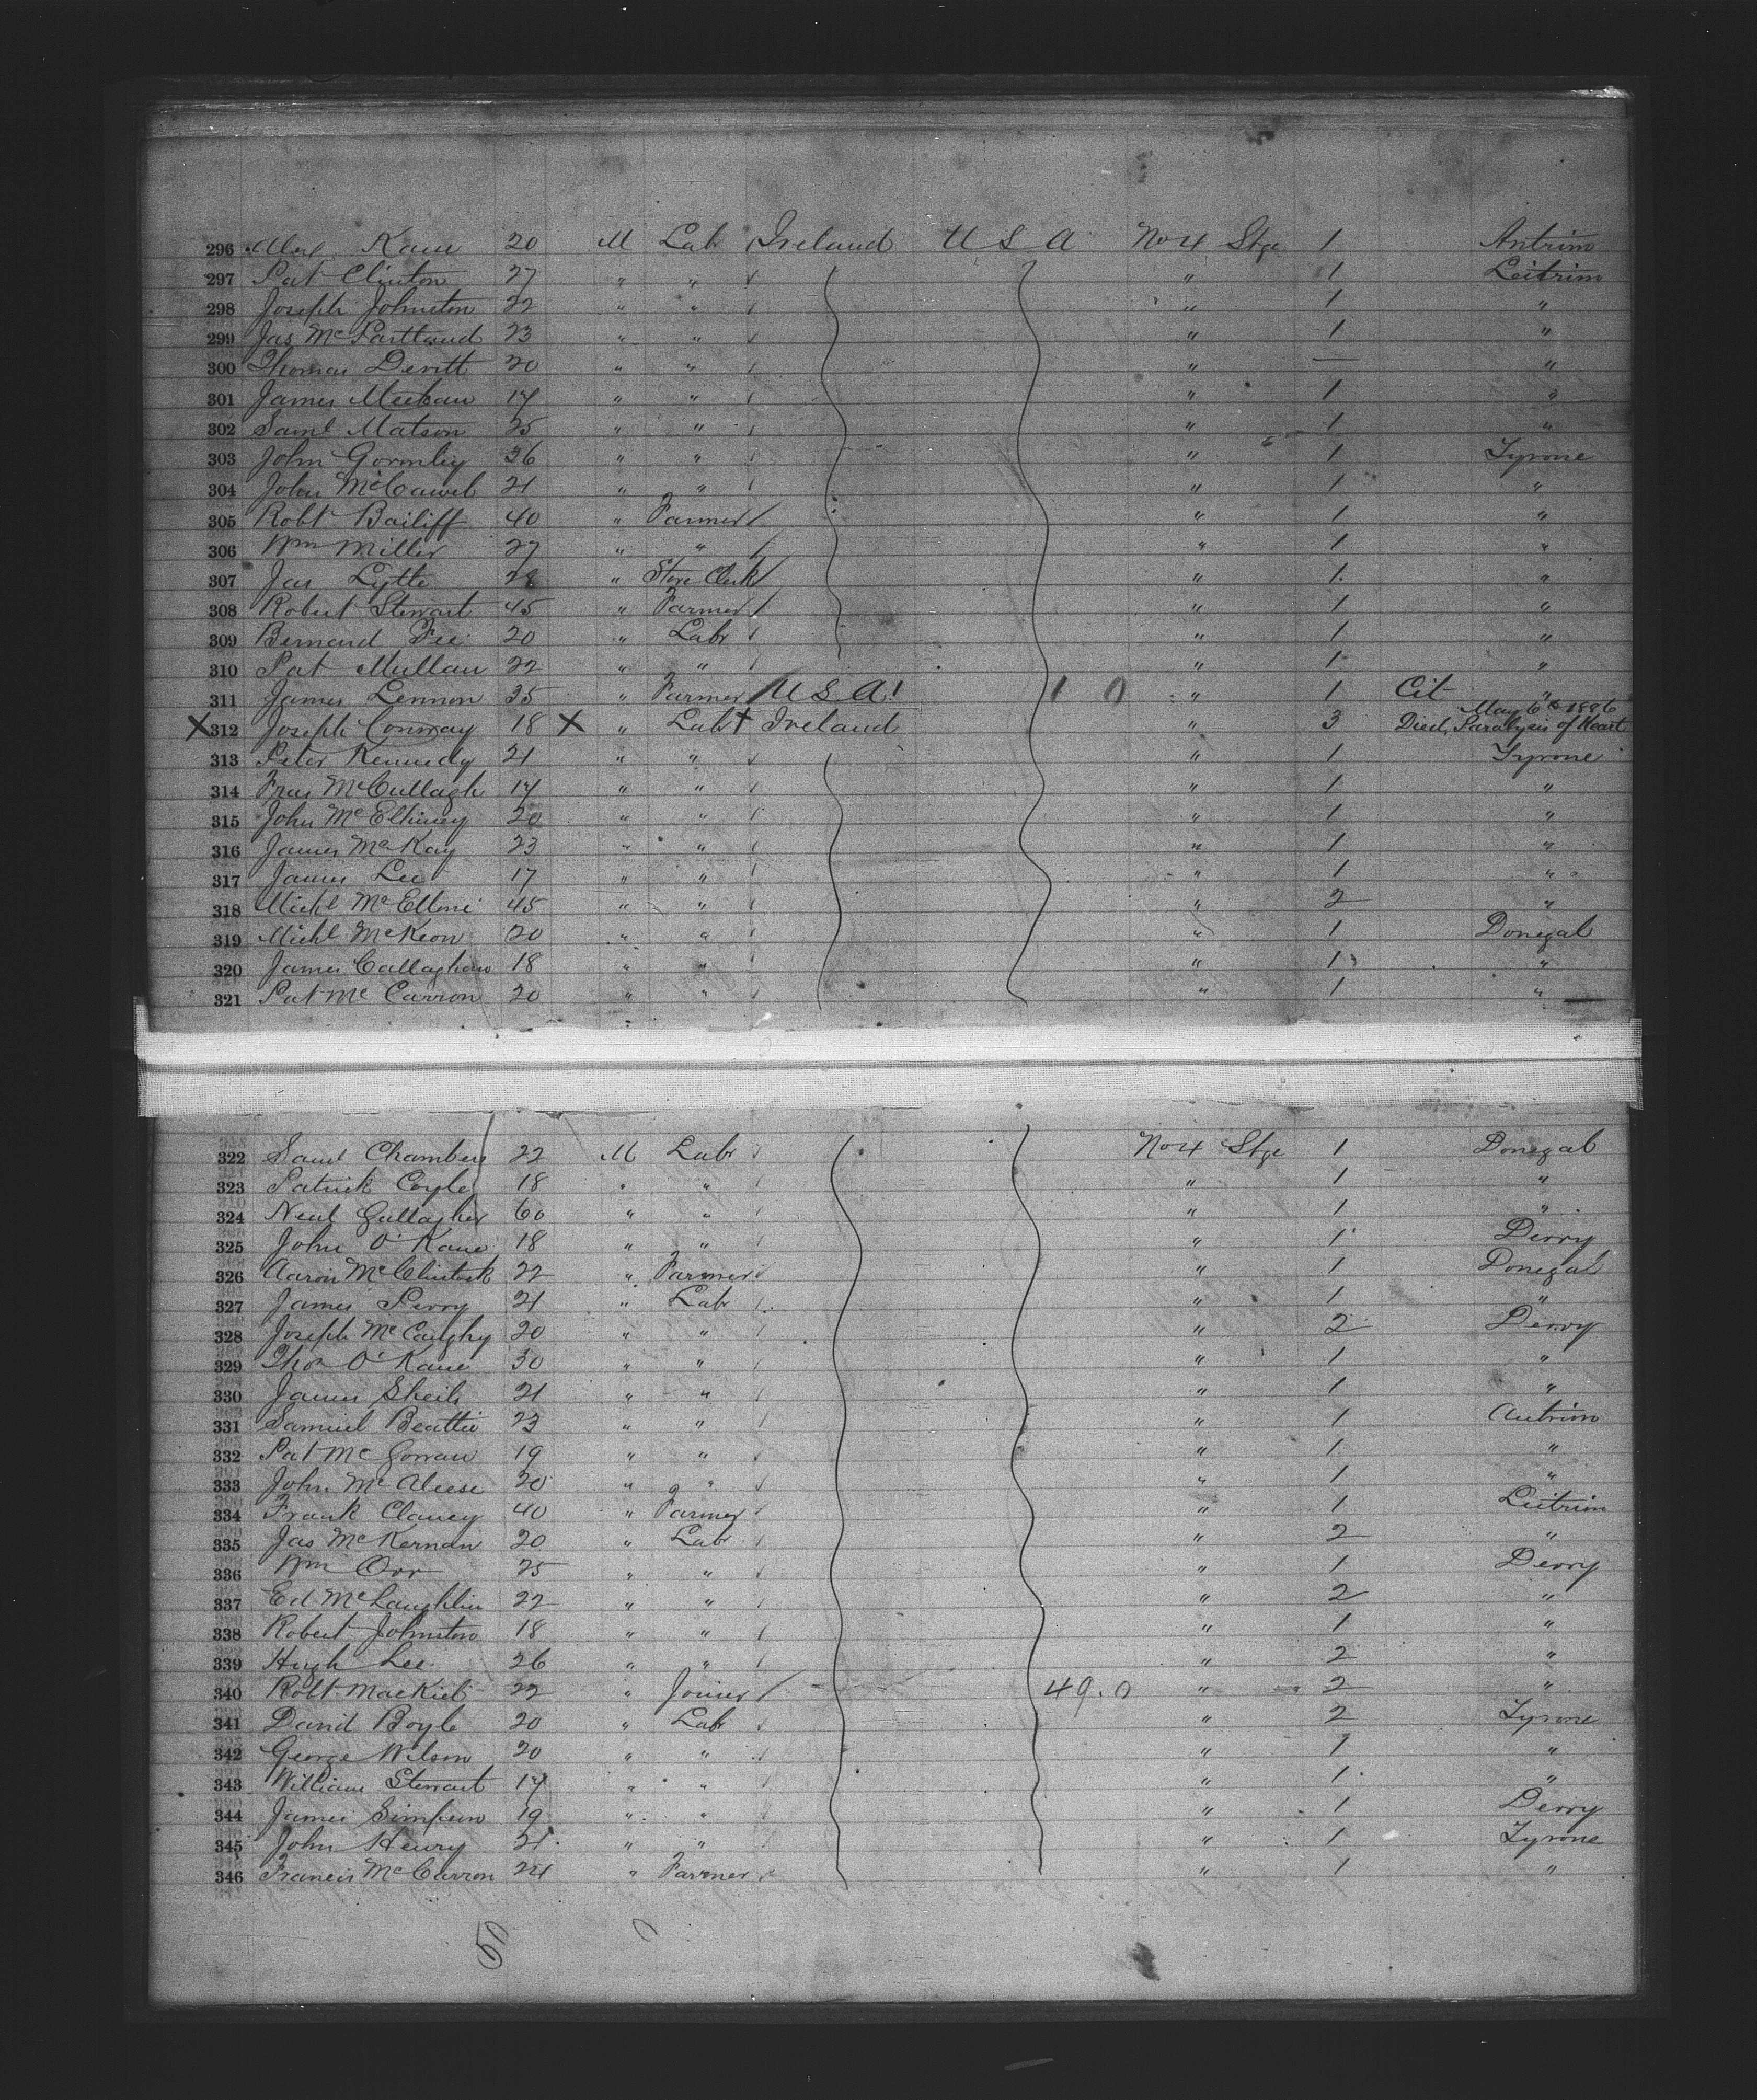 296 Alex Kane 20 M Labr Ireland U S A No 4 Stge 1 Antrim
297 Pat Clinton 27 " " " 1 Leitrim
298 Joseph Johnston 22 " " " 1 "
299 Jas McPartland 23 " " " 1 "
300 Thomas Devitt 20 " " " — "
301 James Meehan 17 " " " 1 "
302 Saml Matson 25 " " " 1 "
303 John Gormley 36 " " " 1 Tyrone
304 John McCawel 21 " " " 1 "
305 Robt Bailiff 40 " Farmer " 1 "
306 Wm Miller 27 " " " 1 "
307 Jas Lytle 28 " Store Clerk " 1 "
308 Robert Stewart 45 " Farmer " 1 "
309 Bernard Fee 20 " Labr " 1 "
310 Pat Mullan 22 " " " 1 "
311 James Lennon 35 " Farmer U S A 1 0 " 1 Cit "
X 312 Joseph Conway 18 X " Lab Ireland " 3 Died, May 6th 1886 Paralysis of Heart
313 Peter Kennedy 21 " " " 1 Tyrone
314 Fras McCullagh 17 " " " 1 "
315 John McElhiney 20 " " " 1 "
316 James McKay 23 " " " 1 "
317 James Lee 17 " " " 1 "
318 Michl 45 " " " 2 "
319 Michl McKeon 20 " " " 1 Donegal
320 James Callaghan 18 " " " 1 "
321 Pat McCarron 20 " " " 1 "
322 Saml Chambers 22 M Labr No 4 Stge 1 Donegal
323 Patrick Coyle 18 " " " 1 "
324 Neal Gallagher 60 " " " 1 "
325 John O'Kane 18 " " " 1 Derry
326 Aaron McClintock 22 " Farmer " 1 Donegal
327 James Perry 21 " Labr " 1 "
328 Joseph McCaughy 20 " " " 2 Derry
329 Thos O'Kane 30 " " " 1 "
330 James Sheils 21 " " " 1 "
331 Samuel Beattie 23 " " " 1 Antrim
332 Pat McGorran 19 " " " 1 "
333 John McAleese 20 " " " 1 "
334 Frank Clancy 40 " Farmer " 1 Leitrim
335 Jas McKernan 20 " Labr " 2 "
336 Wm Orr 25 " " " 1 Derry
337 Ed McLaughlin 22 " " " 2 "
338 Robert Johnston 18 " " " 1 "
339 Hugh Lee 26 " " " 2 "
340 Robt Mackiel 22 " Joiner 49.0 " 2 "
341 David Boyle 20 " Labr " 2 Tyrone
342 George Wilson 20 " " " 1 "
343 William Stewart 17 " " " 1 "
344 James Simpson 19 " " " 1 Derry
345 John Henry 21 " " " 1 Tyrone
346 Francis McCarron 24 " Farmer " 1 "
50